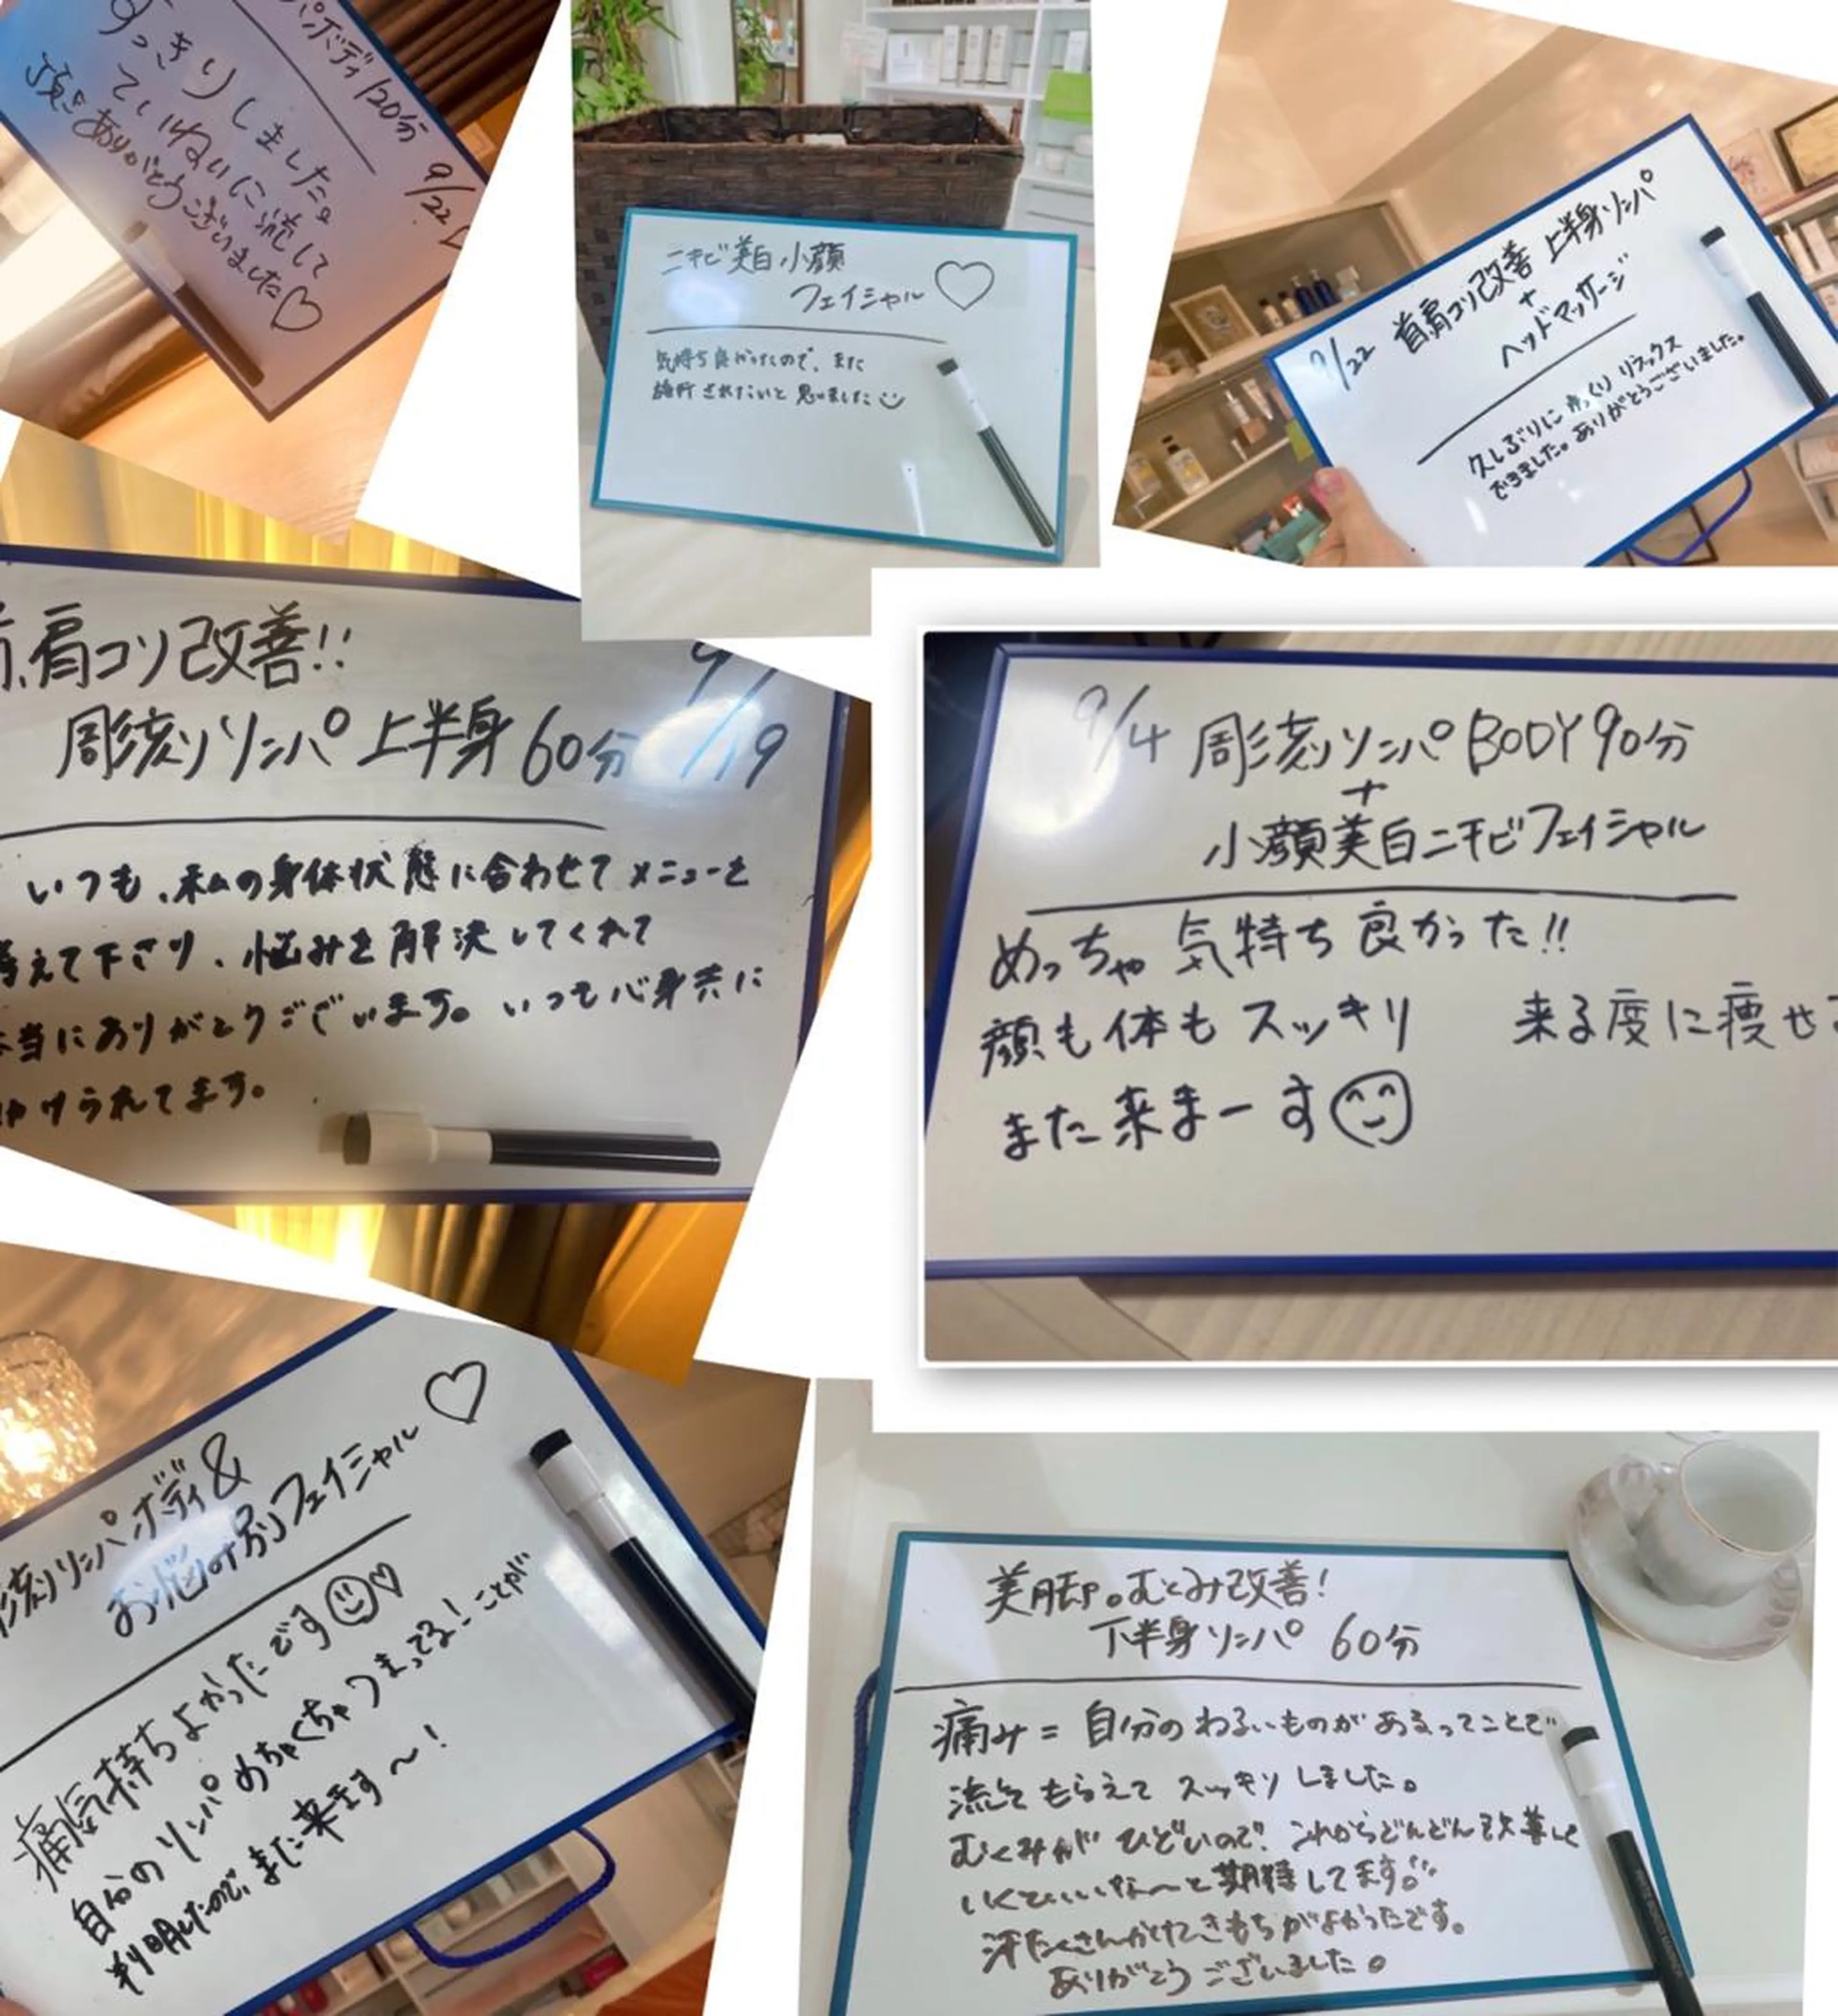 パボディ120分 9/22
すっきりしました。
ていねいに流して
頂きありがとうございました♡
ニキビ美白小顔
フェイシャル ♡
気持ち良かったので、また
施術されたいと思いました
9/22 首肩コリ改善 上半身リンパ
+
ヘッドマッサージ
久しぶりにゆっくりリラックス
できました。ありがとうございました。
肩コリ改善!!
彫刻リンパ上半身60分 9/19
いつも、私の身体状態に合わせてメニューを
考えて下さり、悩みを解決してくれて
本当にありがとうございます。いつも心身共に
られてます。
9/4 彫刻リンパBODY90分
+
小顔美白ニキビフェイシャル
めっちゃ気持ち良かった!!
顔も体もスッキリ 来る度に痩せ
また来まーす
刻リンパボディ&
お悩み別フェイシャル ♡
痛気持ちよかったです♡
自分のリンパめちゃくちゃつまってる!ことが
判明したので、また来ます〜!
美脚。むくみ改善!
下半身リンパ 60分
痛み=自分のわるいものがあるってことで
流してもらえてスッキリしました。
むくみがひどいので、これからどんどん改善して
いくといいな〜と期待してます。
汗たくさんかけてきもちがよかったです。
ありがとうございました。